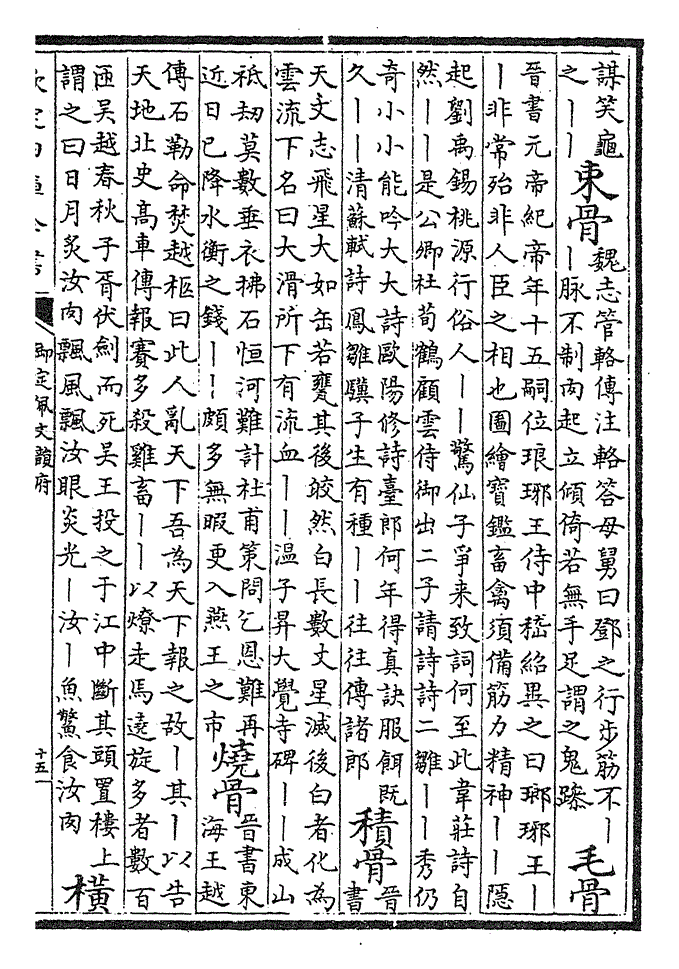 謀笑龜
之丨丨
束骨
魏志管輅傳注輅答母舅曰鄧之行步筋不丨
丨脉不制肉起立傾倚若無手足謂之鬼躁
毛骨
晉書元帝紀帝年十五嗣位琅琊王侍中嵇紹異之曰瑯琊王丨
丨非常殆非人臣之相也圖繪寶鑑畜禽須備筋力精神丨丨隱
起劉禹錫桃源行俗人丨丨驚仙子爭来致詞何至此韋莊詩自
然丨丨是公卿杜荀鶴顧雲侍御出二子請詩詩二雛丨丨秀仍
奇小小能吟大大詩歐陽修詩臺郎何年得真訣服餌既
久丨丨清蘇軾詩鳳雛驥子生有種丨丨往往傳諸郎
積骨
晉
書
天文志飛星大如缶若甕其後皎然白長數丈星滅後白者化為
雲流下名曰大滑所下有流血丨丨温子昇大覺寺碑丨丨成山
祇劫莫數垂衣拂石恒河難計杜甫策問乞恩難再
近日已降水衡之錢丨丨頗多無暇更入燕王之市
燒骨
晉書東
海王越
傳石勒命焚越柩曰此人亂天下吾為天下報之故丨其丨以告
天地北史高車傳報賽多殺雜畜丨丨以燎走馬遶旋多者數百
匝吳越春秋子胥伏劍而死吳王投之于江中斷其頭置樓上
謂之曰日月炙汝肉飄風飄汝眼炎光丨汝丨魚鱉食汝肉
橫
欽定四庫全書
御定佩文韻府
十五